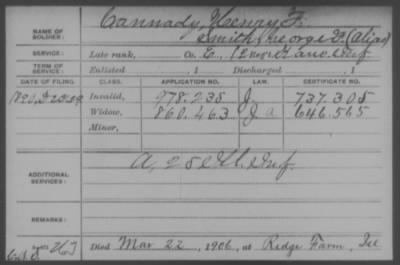 NAME OF SOLDIER: Cannady, Henry F.
Smith, George F. (Alias)
SERVICE: Late rank, Co. E, 12 Reg't Kans. Inf.
TERM OF SERVICE: Enlisted , 1 Discharged , 1
DATE OF FILING. CLASS. APPLICATION NO. LAW. CERTIFICATE NO.
Invalid, 978.235 J. 737.305
Widow, 860.463 J a 646.565
Minor,
ADDITIONAL SERVICES: A, 25 Ill. Inf.
REMARKS:
Died Mar 22, 1906, at Ridge Farm, Ill